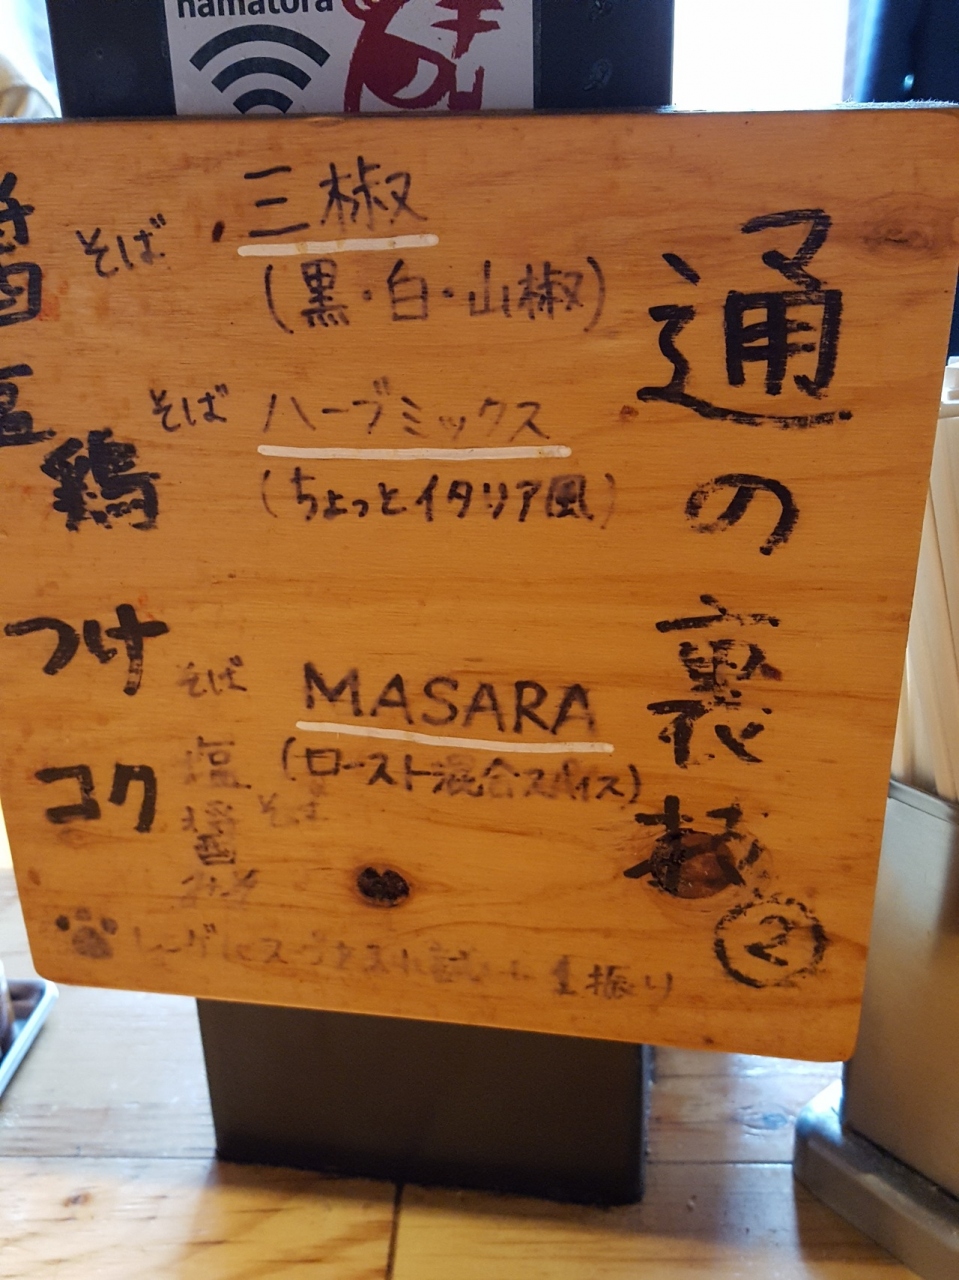 hamatora
通の裏技
②
三椒
(黒・白・山椒)
ハーブミックス
(ちょっとイタリア風)
MASARA
(ロースト混合スパイス)
そば
そば
そば
塩
醤 そば
みそ
醤
塩
鶏
つけ
コク
1振り